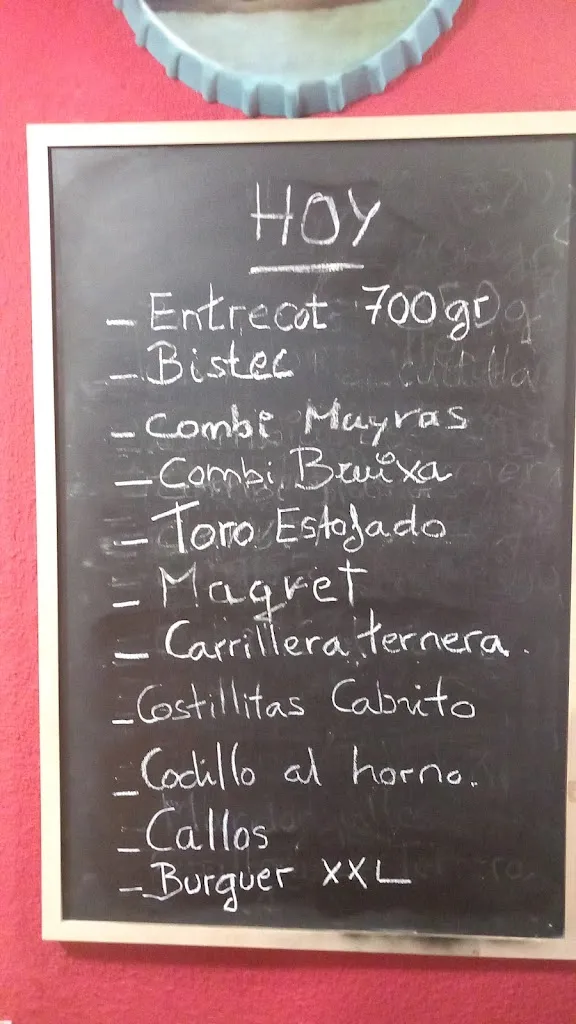 HOY
- Entrecot 700gr
- Bistec
- Combi Mayras
- Combi Bruixa
- Toro Estofado
- Magret
- Carrillera ternera.
- Costillitas Cabrito
- Codillo al horno.
- Callos
- Burguer XXL